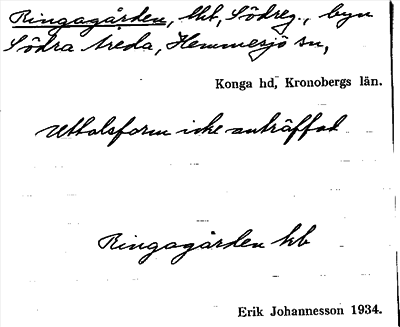 Ringagården, lht, Södreg., byn
Södra Åreda, Hemmesjö sn,
Konga hd, Kronobergs län.
Uttalsform icke anträffad
Ringagården hb
Erik Johannesson 1934.